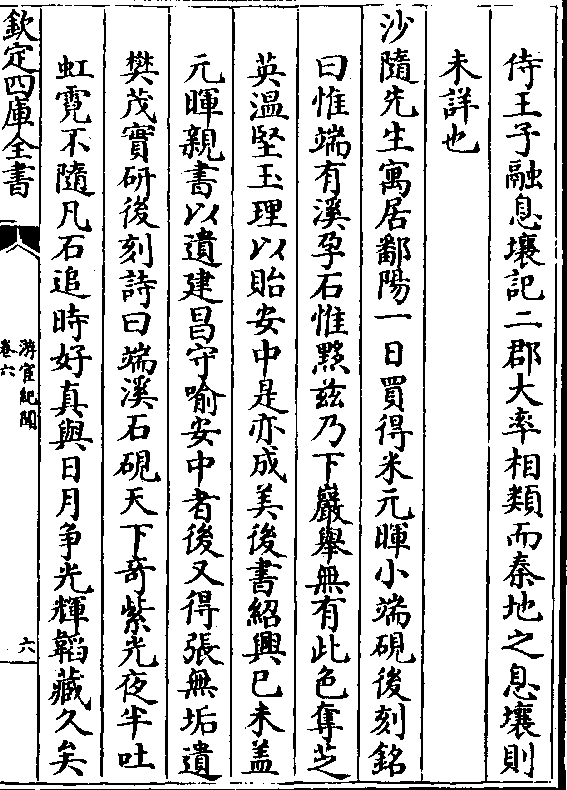 侍王子融息壤記二郡大率相類而秦地之息壤則
未詳也
沙隨先生寓居鄱陽一日買得米元暉小端硯後刻銘
曰惟端有溪孕石惟黟兹乃下巖舉無有此色奪芝
英溫堅玉理以貽安中是亦成美後書紹興己未盖
元暉親書以遺建昌守喻安中者後又得張無垢遺
樊茂實研後刻詩曰端溪石硯天下竒紫光夜半吐
虹霓不隨凡石追時好真與日月争光輝韜藏久矣
欽定四庫全書
游宦紀聞
卷六
六